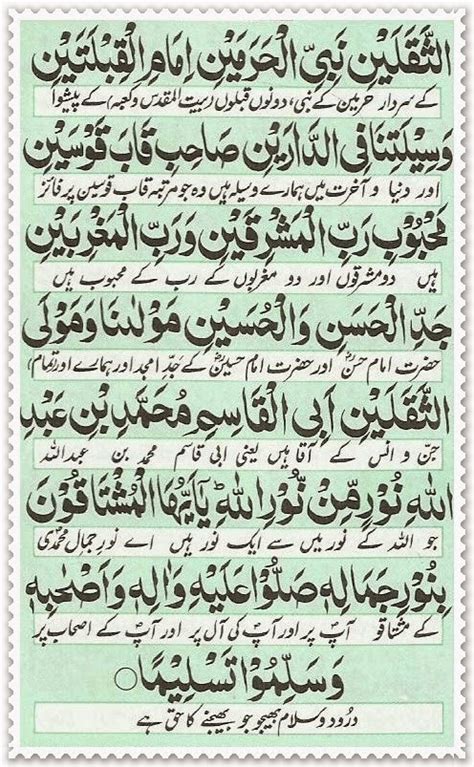 الثَّقَلَيْنِ نَبِيِّ الْحَرَمَيْنِ اِمَامِ الْقِبْلَتَيْنِ
کے سردار حرمین کے نبی، دونوں قبلوں (بیت المقدس و کعبہ) کے پیشوا
وَسِيْلَتِنَا فِي الدَّارَيْنِ صَاحِبِ قَابَ قَوْسَيْنِ
اور دنیا و آخرت میں ہمارے وسیلہ ہیں وہ جو مرتبہ قاب قوسین پر فائز
مَحْبُوْبِ رَبِّ الْمَشْرِقَيْنِ وَرَبِّ الْمَغْرِبَيْنِ
ہیں دو مشرقوں اور دو مغربوں کے رب کے محبوب ہیں
جَدِّ الْحَسَنِ وَالْحُسَيْنِ مَوْلٰىنَا وَمَوْلَى
حضرت امام حسنؓ اور حضرت امام حسینؓ کے جدِّ امجد اور ہمارے اور (تمام)
الثَّقَلَيْنِ اَبِي الْقَاسِمِ مُحَمَّدِ بْنِ عَبْدِ
جن و انس کے آقا ہیں یعنی ابی قاسم محمد بن عبداللہ
اللهِ نُوْرٍ مِّنْ نُّوْرِ اللهِ ؕ يٰٓاَيُّهَا الْمُشْتَاقُوْنَ
جو اللہ کے نور میں سے ایک نور ہیں اے نورِ جمالِ محمدی
بِنُوْرِ جَمَالِهٖ صَلُّوْا عَلَيْهِ وَاٰلِهٖ وَاَصْحٰبِهٖ
کے مشتاقو آپؐ پر اور آپؐ کی آل پر اور آپؐ کے اصحاب پر
وَسَلِّمُوْا تَسْلِيْمًا ○
درود و سلام بھیجو جو بھیجنے کا حق ہے